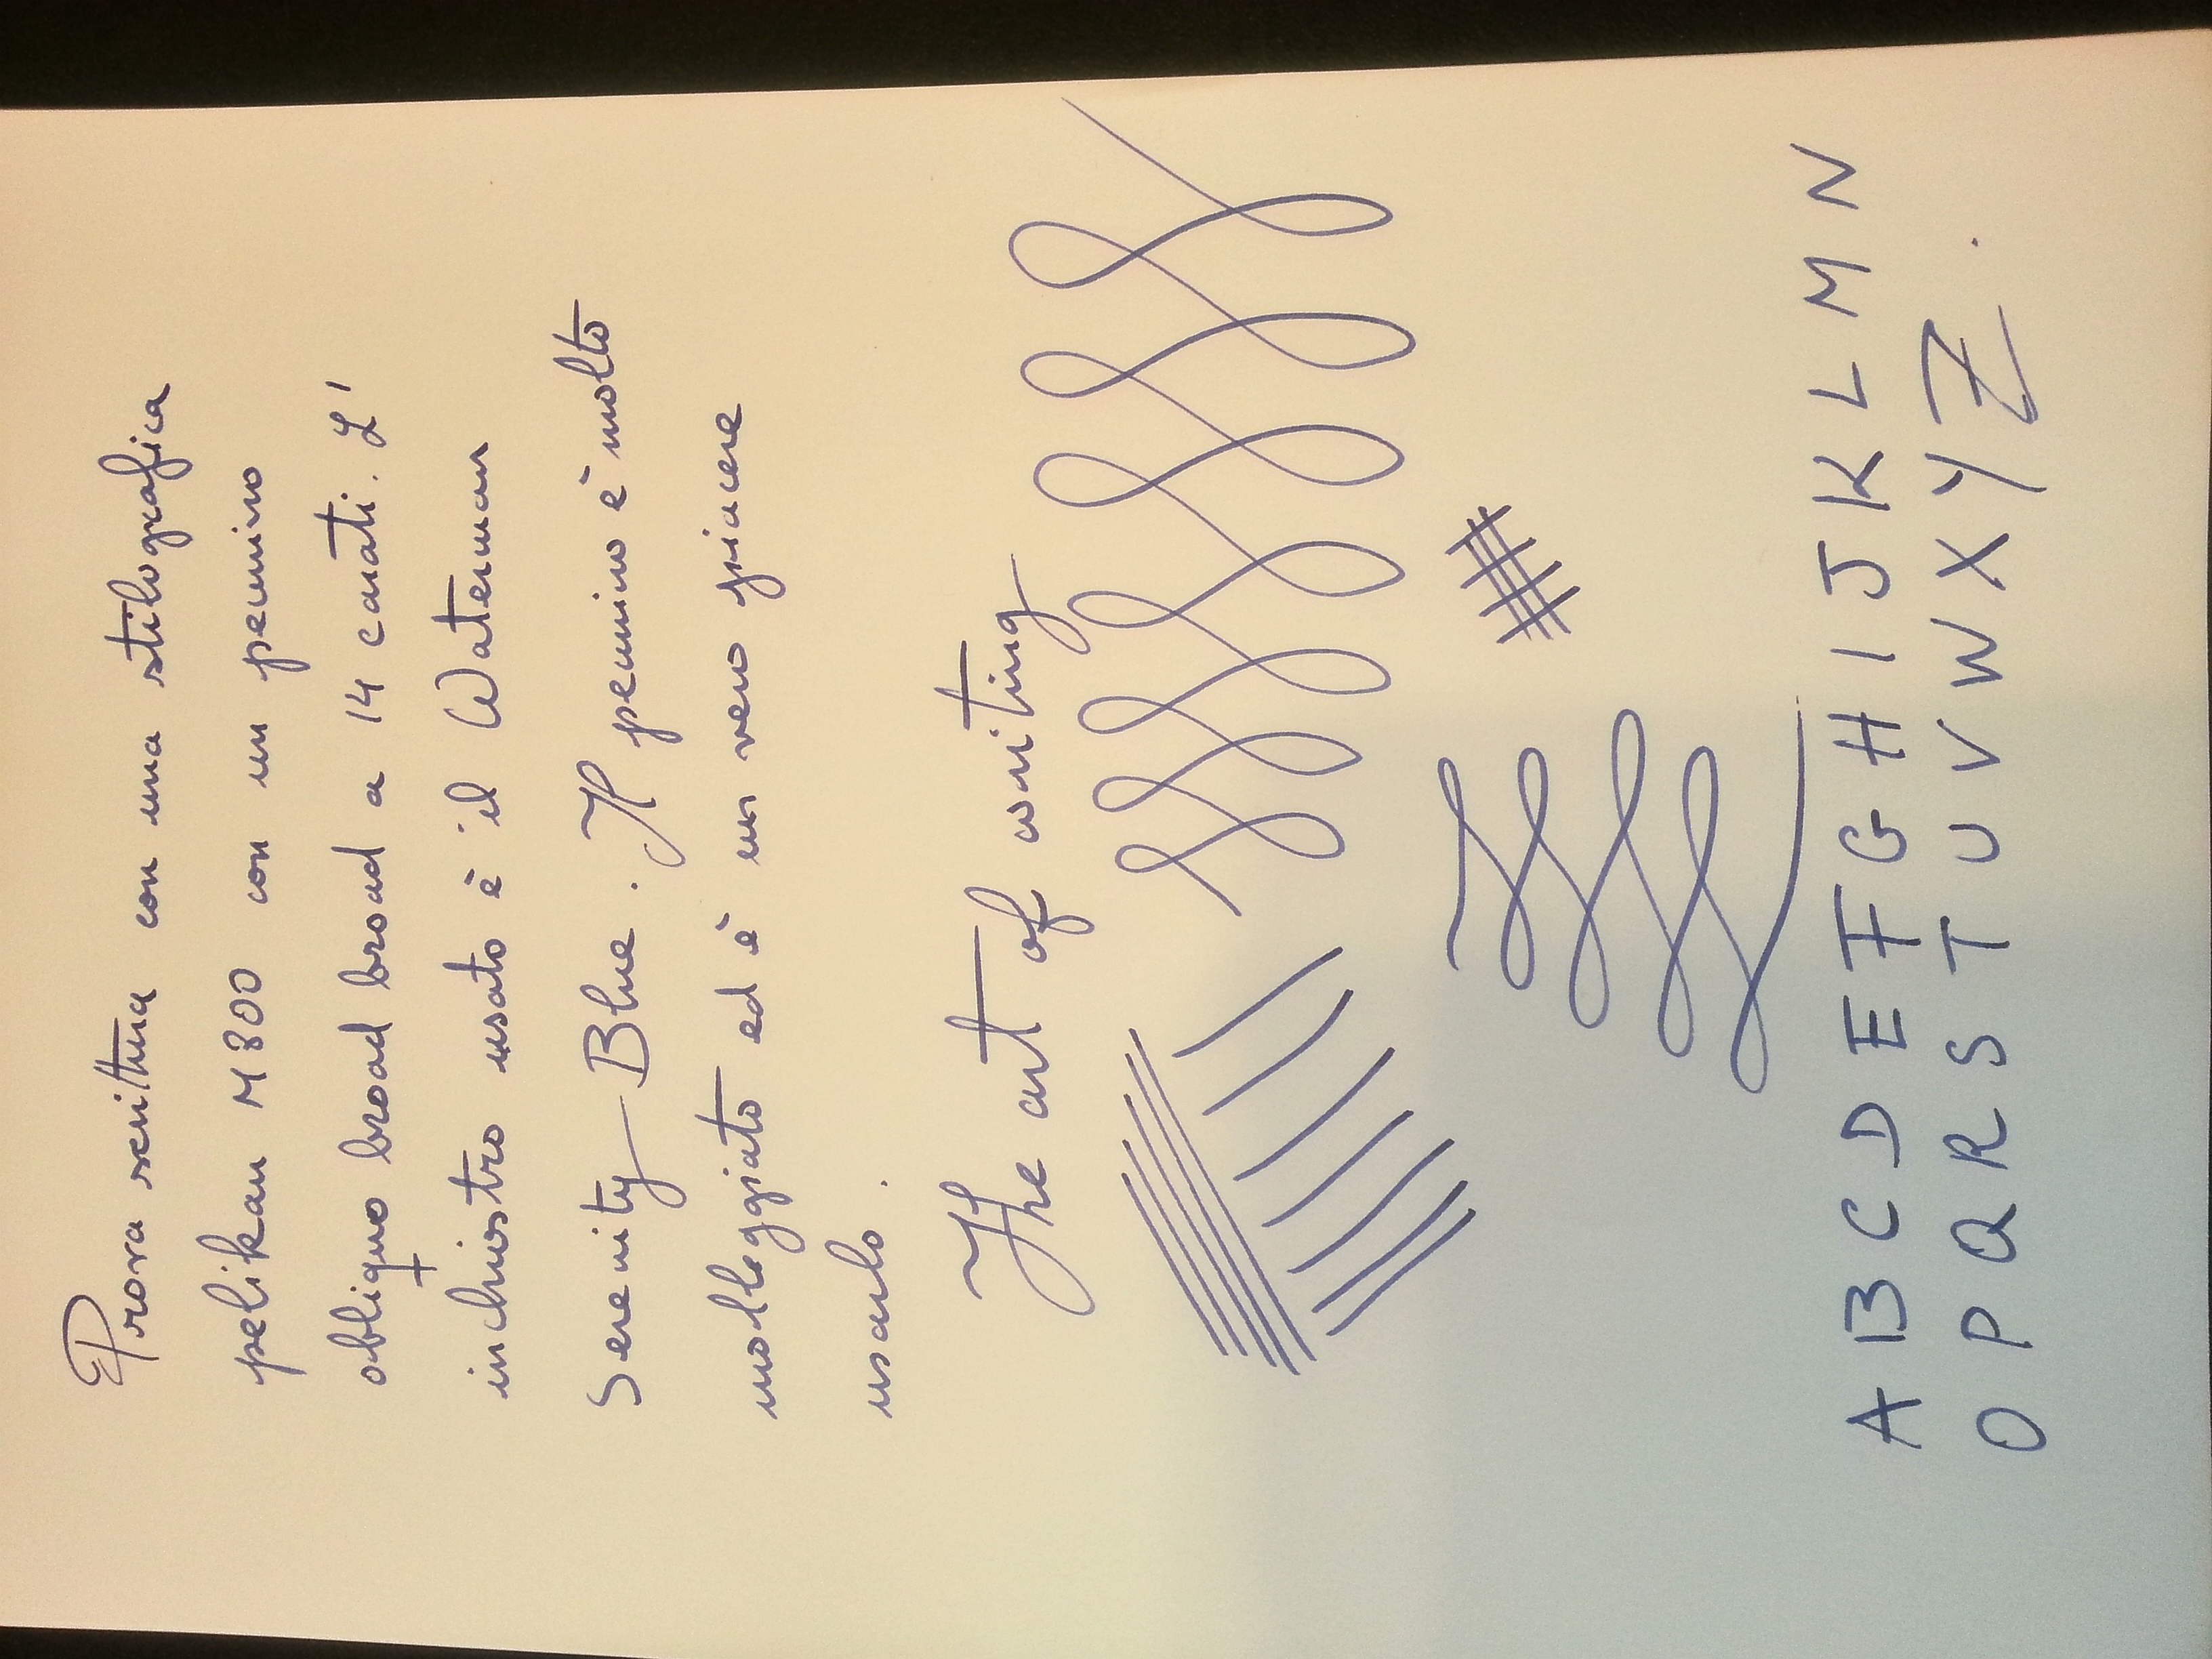 Prova scrittura con una stilografica
pelikan M800 con un pennino
obliquo broad broad a 14 carati. L'
inchiostro usato è il Waterman
Serenity Blue. Il pennino è molto
molleggiato ed è un vero piacere
usarlo.
The art of writing
A B C D E F G H I J K L M N
O P Q R S T U V W X Y Z.